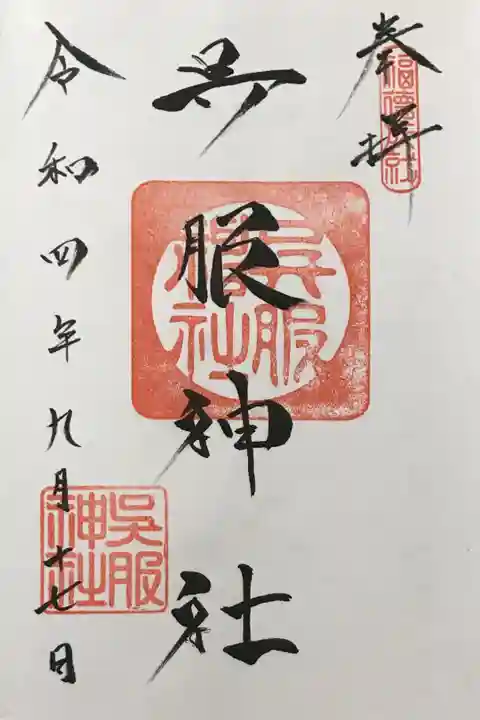 奉拝
福徳神社
呉服神社
呉服神社
令和四年九月十七日
呉服神社